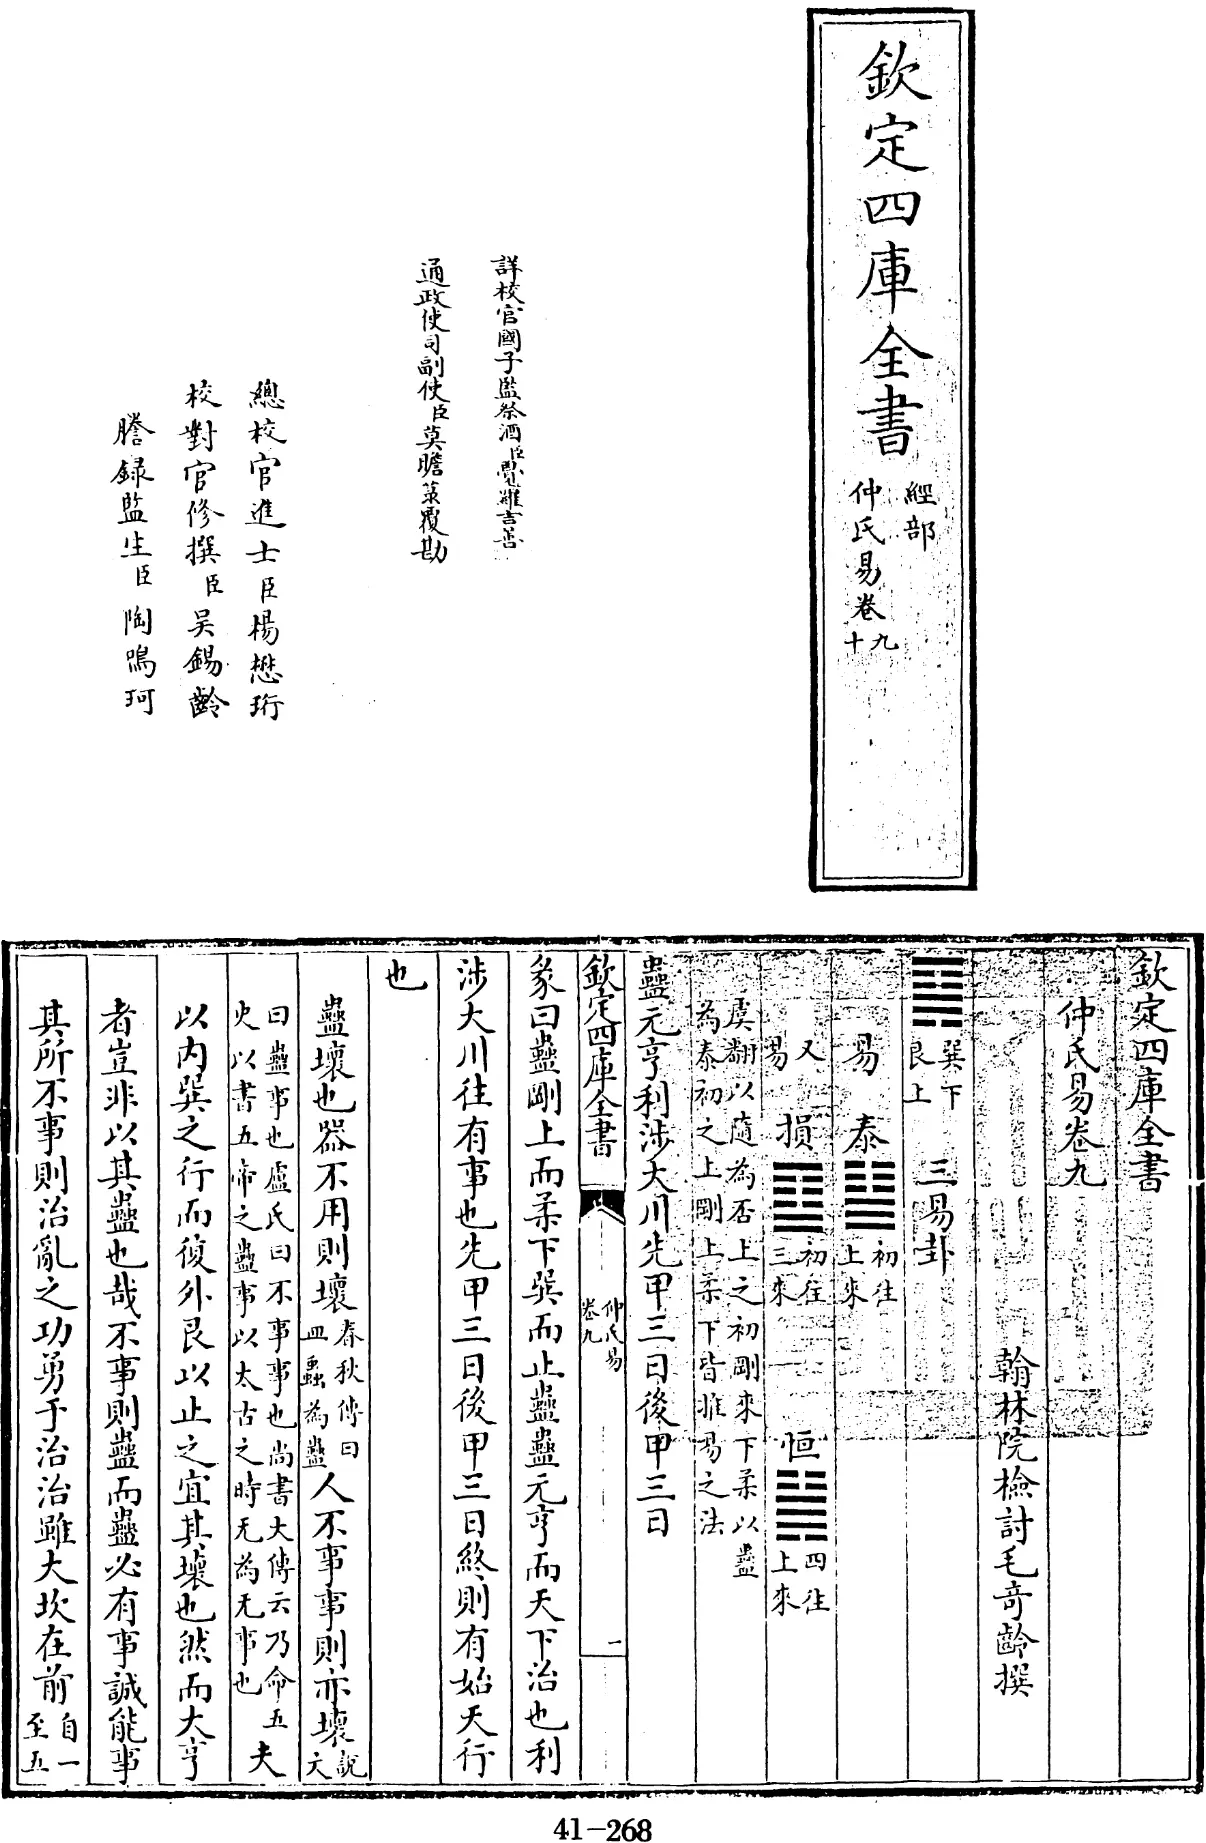 欽定四庫全書
經部
仲氏易卷九
十
詳校官國子監祭酒臣覺羅吉善
通政使司副使臣莫瞻菉覆勘
總校官進士臣楊懋珩
校對官修撰臣吳錫齡
謄錄監生臣陶鳴珂
欽定四庫全書
仲氏易卷九
翰林院檢討毛奇齡撰
巽下
艮上
三易卦
易 泰 初往
上來
又
易 損 初往
三來 恒 四往
上來
虞翻以隨為否上之初剛來下柔以蠱
為泰初之上剛上柔下皆推易之法
蠱元亨利涉大川先甲三日後甲三日
欽定四庫全書
仲氏易
卷九
二
彖曰蠱剛上而柔下巽而止蠱蠱元亨而天下治也利
涉大川往有事也先甲三日後甲三日終則有始天行
也
蠱壞也器不用則壞春秋傳曰
皿蟲為蠱人不事事則亦壞說
文
曰蠱事也盧氏曰不事事也尚書大傳云乃命五
史以書五帝之蠱事以太古之時无為无事也夫
以內巽之行而復外艮以止之宜其壞也然而大亨
者豈非以其蠱也哉不事則蠱而蠱必有事誠能事
其所不事則治亂之功勇于治治雖大坎在前自一
至五
41-268